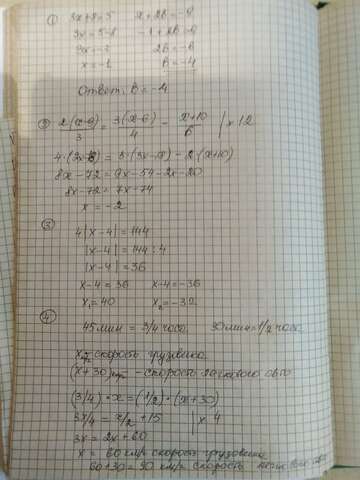 ① 3x+8=5   x+2B=-9
3x=5-8   -1+2B=-9
3x=-3   2B=-8
x=-1   B=-4
Ответ: B=-4
② 2(x-9)/3 = 3(x-6)/4 - x+10/6 | x12
8x-72=9x-54-2x-20
8x-72=7x-74
x=-2
③
4|x-4|=144
|x-4|=144:4
|x-4|=36
x-4=36   x-4=-36
x₁=40   x₂=-32
④
45 мин = 3/4 часа   30 мин=1/2 часа
скорость грузовика
(x+30) - скорость легкового авто
(3/4)·x=(1/2)·(x+30)
3x/4=x/2+15 | x4
3x=2x+60
x=60 км/ч скорость грузовика
60+30=90 км/ч скорость